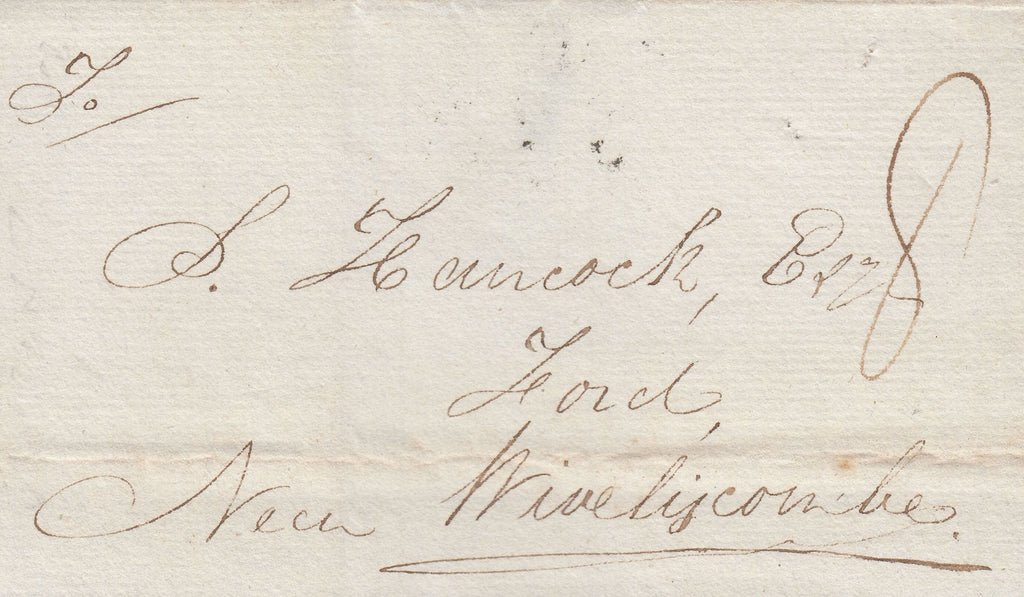 To
S. Hancock, Esqr
8
Ford,
Near Wiveliscombe.